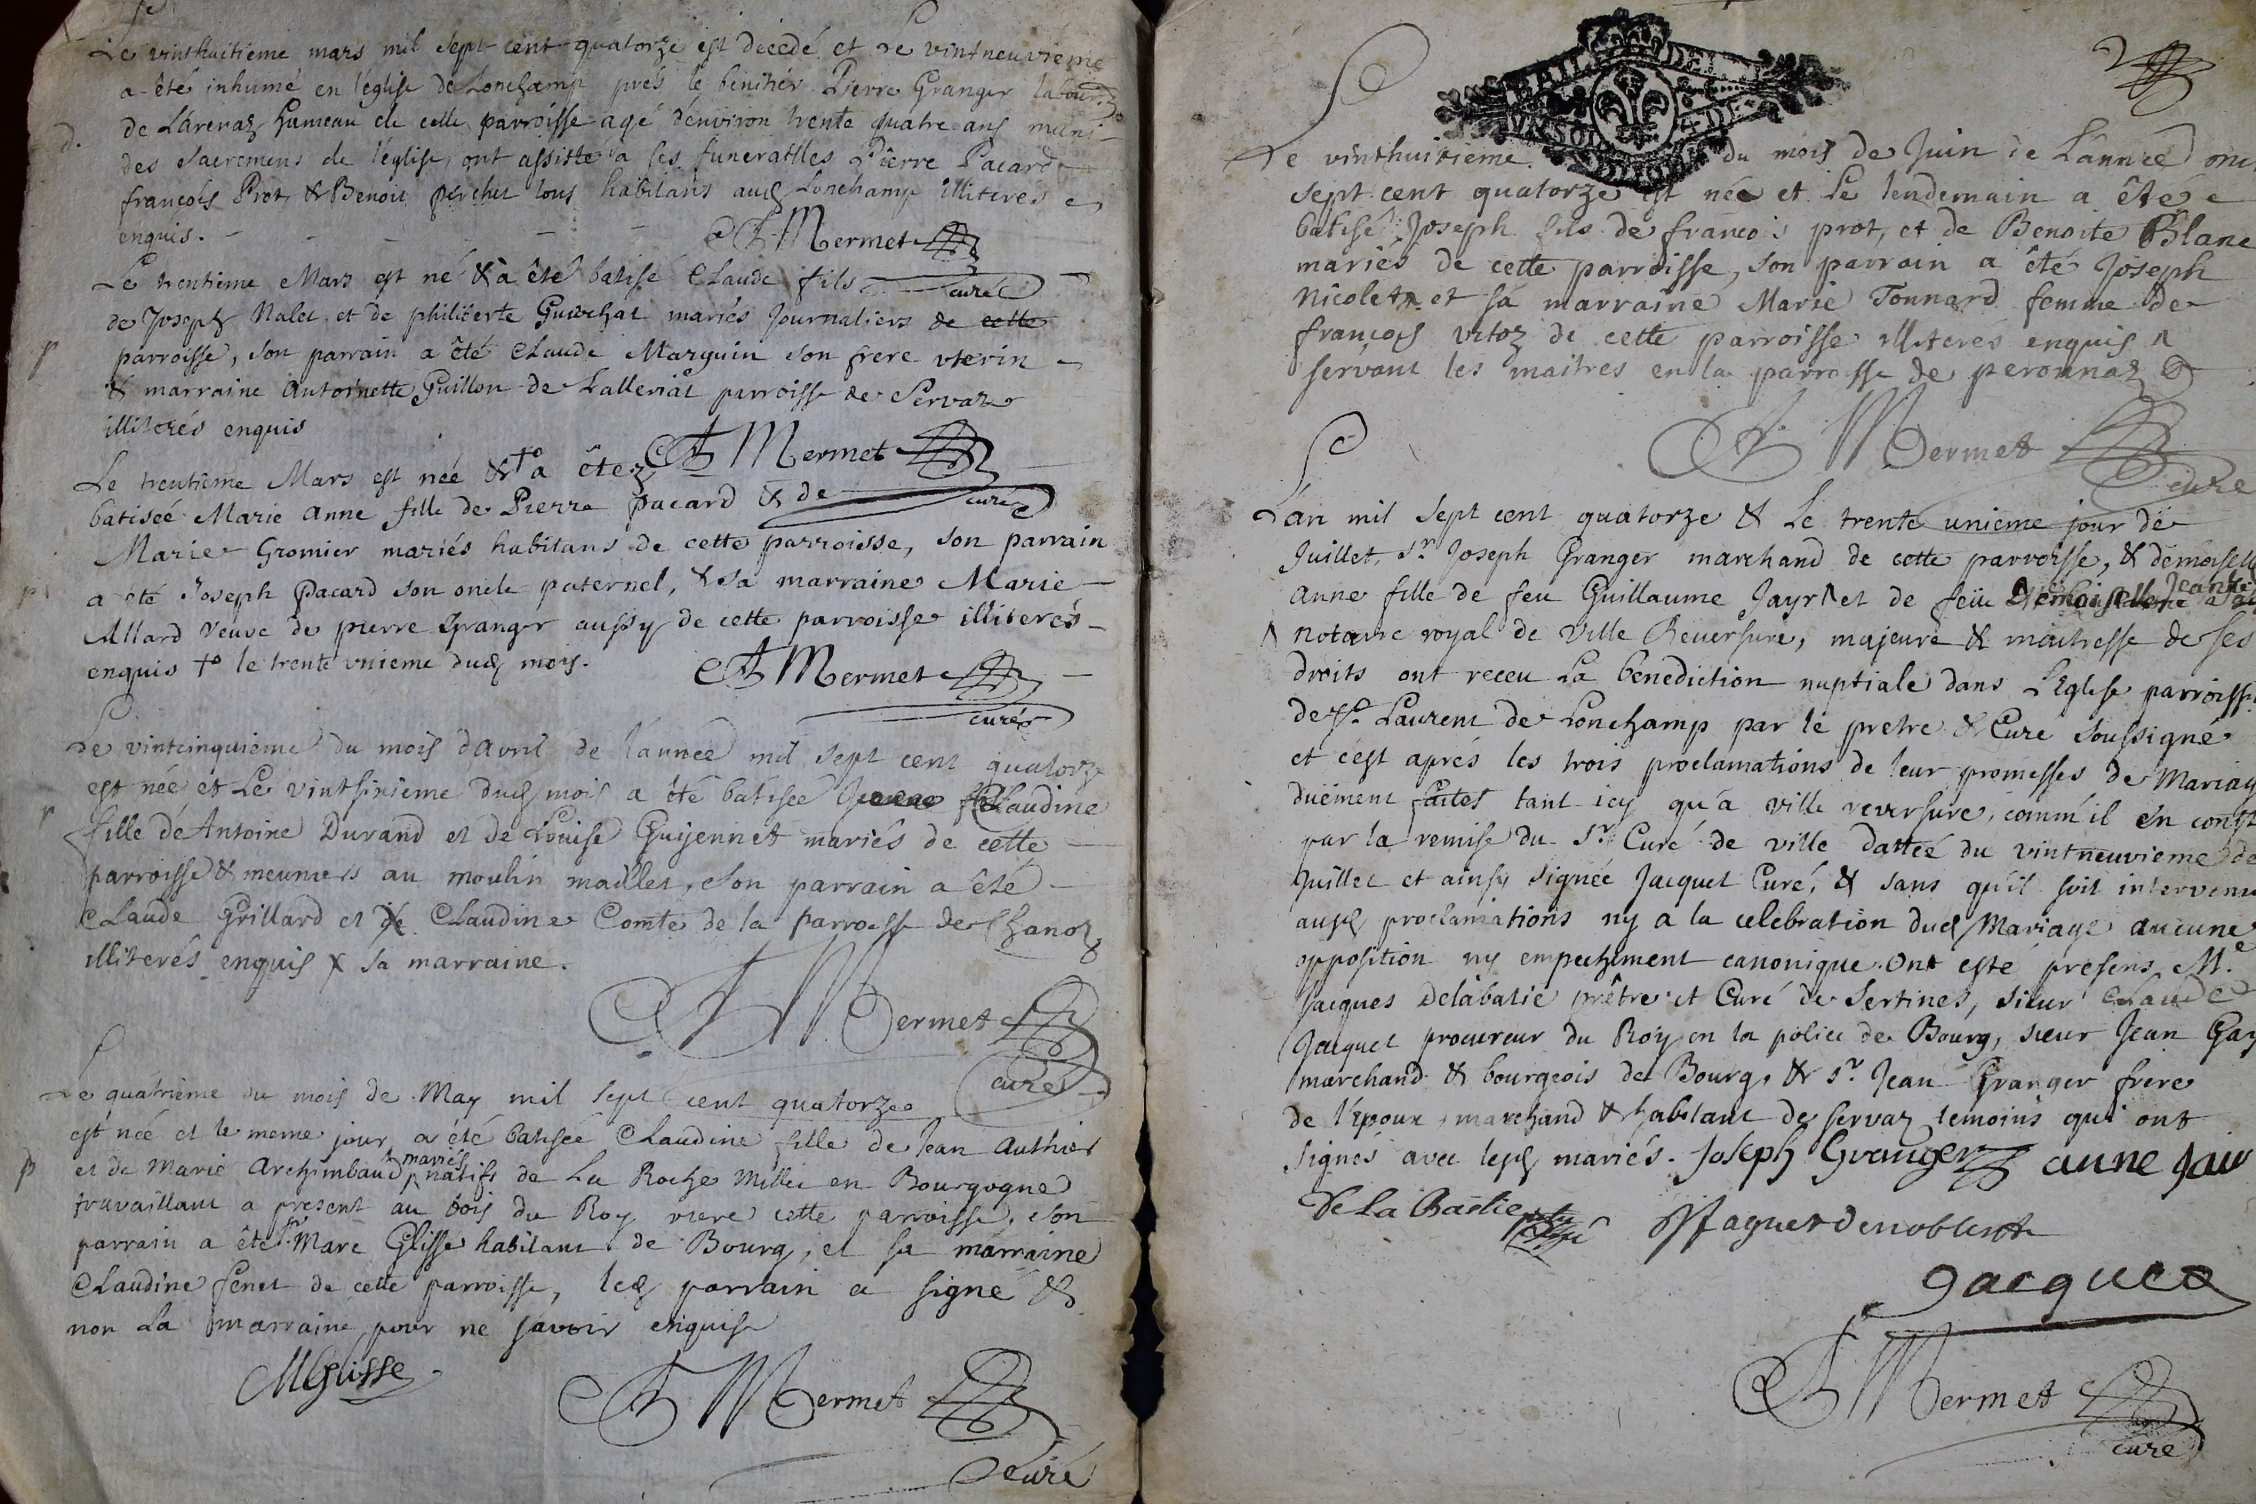 Le vinthuitieme mars mil sept cent quatorze est decedé et le vintneuvieme
a été inhumé en l'eglise de Lonchamp prés le benitier Pierre Granger
de Larenaz hameau de cette parroisse agé d'environ trente quatre ans muni
d.
des sacremens de l'eglise, ont assisté a ses funerailles Pierre Pacard
françois Prot & Benoit perchet tous habitans aud Lonchamp illiterés
enquis.
A Mermet
curé
Le trentieme Mars est né & a été batisé Claude fils
de Joseph Nalet et de philiberte Guichat mariés Journaliers de cette
parroisse, son parrain a été Claude Marguin son frere uterin
& marraine Antoinette Guillon de Lalleriat parroisse de Servaz
illiterés enquis
A Mermet
curé
Le trentieme Mars est née & +o a été
batiseé Marie anne fille de Pierre pacard & de
Marie Gromier mariés habitans de cette parroisse, son parrain
a été Joseph pacard son oncle paternel, & sa marraine Marie
Allard veuve de pierre Granger aussy de cette parroisse illiterés
enquis +o le trente unieme dud mois.
A Mermet
curé
Le vintcinquieme du mois d'avril de l'année mil sept cent quatorze
est née et Le vintsixieme dud mois a été batisée Claudine
fille de Antoine Durand et de Louise Guyennet mariés de cette
parroisse & meuniers au moulin maillet, son parrain a été
Claude Grillard et Claudine Comte de la parroisse de Chanoz
illiterés enquis x sa marraine.
A Mermet
curé
Le quatrieme du mois de May mil sept cent quatorze
est née et le meme jour a été batisée Claudine fille de Jean Authier
et de Marie Archimbaud mariés natifs de La Roche Millei en Bourgogne
p
travaillant a present au bois du Roy vers cette parroisse, son
parrain a été Sr Marc Glisse habitant de Bourg, et sa marraine
Claudine fenet de cette parroisse, led parrain a signé &
non La marraine pour ne sçavoir enquise
MGlisse
A Mermet
curé
Le vinthuitieme du mois de Juin de L'année
sept cent quatorze est née et Le lendemain a été
batisé Joseph fils de francois prot, et de Benoite Blanc
mariés de cette parroisse, son parrain a été Joseph
Nicolet ^ et sa marraine Marie Tonnard femme de
françois vitoz de cette parroisse illiterés enquis ^
servant les maitres en la parroisse de peronnaz
A Mermet
curé
L'an mil sept cent quatorze & Le trente unieme jour de
Juillet, Sr Joseph Granger marchand de cette parroisse, & demoiselle
anne fille de feu Guillaume Jayr ^ et de feüe Jeanne
^ notaire royal de Ville Reversure, majeure & maitresse de ses
droits ont receu La benediction nuptiale dans L'Eglise parroiss
de St Laurent de Lonchamp par le pretre & Curé soussigné
et c'est aprés les trois proclamations de leur promesses de Mariag
duëment faites tant icy qu'a ville reversure, comm'il en const
par la remise du Sr Curé de ville dattée du vintneuvieme de
Juillet et ainsy signée Jacquet Curé, & sans qu'il soit intervenu
auxd proclamations ny a la celebration dud Mariage aucune
opposition ny empechement canonique. Ont esté presens Me
Jacques Delabatie prêtre et Curé de Sertines, sieur Claude
Jacquet procureur du Roy en la police de Bourg, sieur Jean Gay
marchand & bourgeois de Bourg, & Sr Jean Granger frere
de l'epoux, marchand & habitant de servaz temoins qui ont
signés avec lesd mariés. Joseph Granger anne Jair
De La Bastie
Jacquet
A Mermet
curé